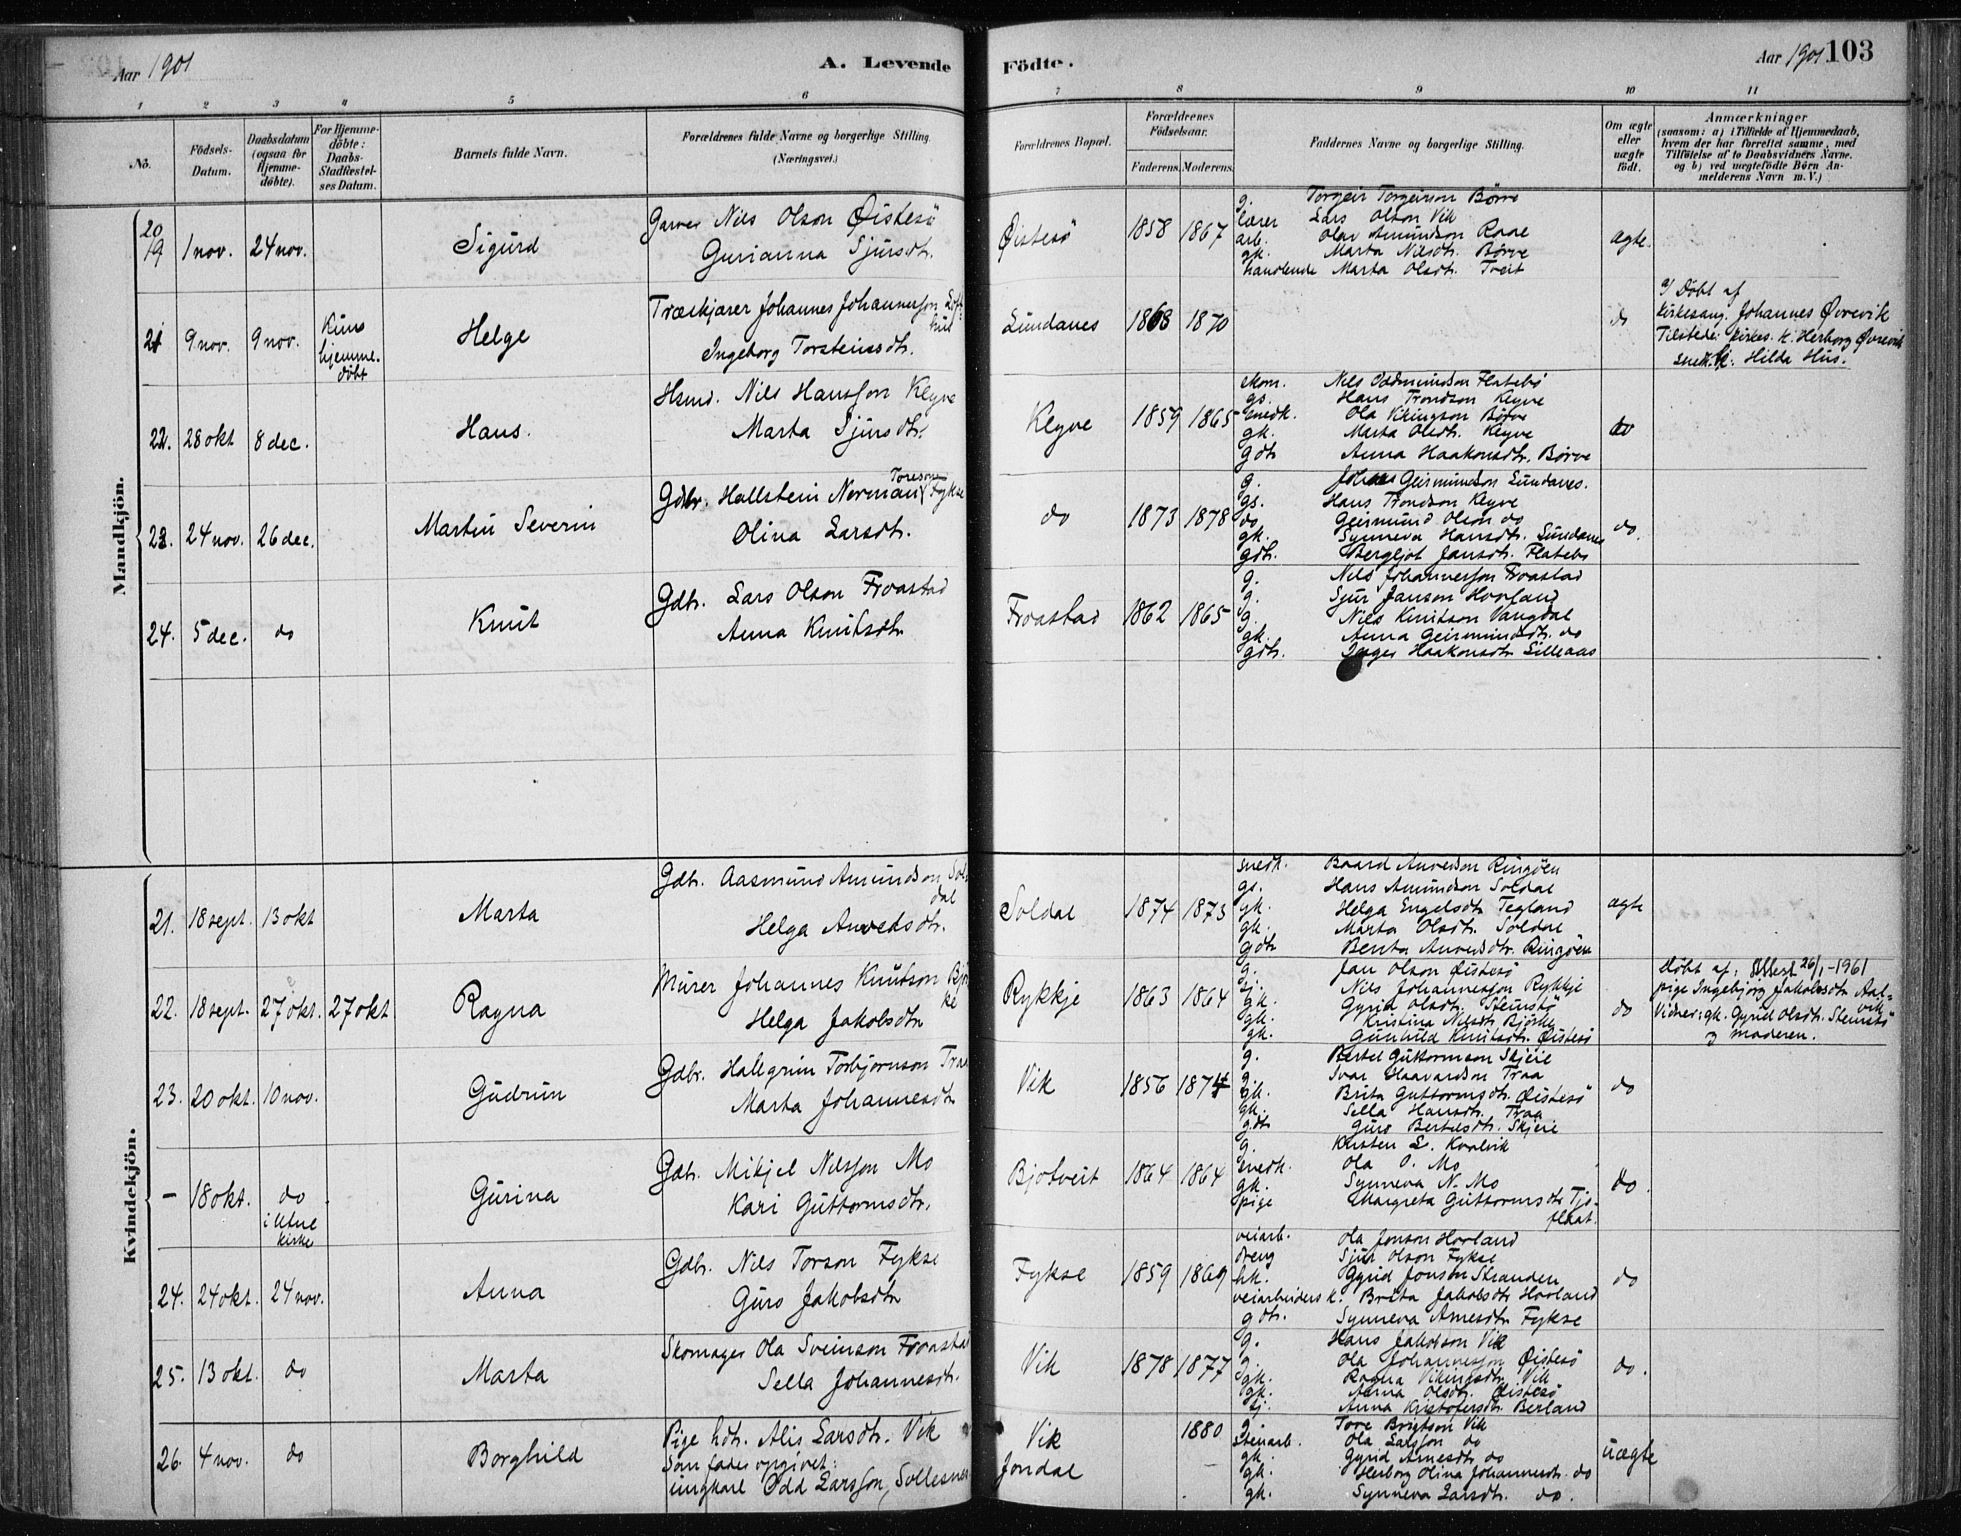 Aar 1901
A. Levende Födte.
Aar 1901 103
1 2 3 4 5 6 7 8 9 10 11
No.
Födsels-Datum.
Daabsdatum (ogsaa for Hjemme-döbte).
For Hjemme-döbte: Daabs-Stadfæstel-ses Datum.
Barnets fulde Navn.
Forældrenes fulde Navne og borgerlige Stilling. (Næringsvei.)
Forældrenes Bopæl.
Forældrenes Födselsaar.
Faderens. Moderens.
Faddernes Navne og borgerlige Stilling.
Om ægte eller uægte födt.
Anmærkninger
(saasom: a) i Tilfælde af Hjemmedaab,
hvem der har forrettet samme, med
Tilföielse af to Daabsvidners Navne.
og b) ved uægtefödte Börn An-
melderens Navn m. V.)
Mandkjön.
20
19 1 nov. 24 nov. Sigurd
Garver Nils Olson Øistesö
Gurianna Sjursdtr.
Øistesö 1858 1867
g. Torgeir Torgeirson Børve
lærer Lars Olson Vik
arb. Olav Amundson Raae
gk. Marta Nilsdtr. Børve
handlende Marta Olsdtr. Treit
ægte.
21 9 nov. 9 nov. Kun hjemme-döbt Helge
Træskjærer Johannes Johannesson
Ingeborg Torsteinsdtr.
Lundanes 1868 1870
do
Döbt af
kirkesang. Johannes Øvrevik
Tilstede: kirkes. k. Herborg Øvrevik
snedk. k. Hilda Hus.
22. 28 okt 8 dec. Hans.
Hsmd. Nils Hansson Kleyve
Marta Sjursdtr.
Kleyve 1859 1865
skom. Nils Oddmundson Flatebö
gs. Hans Trondson Kleyve
snedk. Ola Vikingson Børve
gk. Marta Olsdtr. Kleyve
gdtr Anna Haakonsdtr. Børve
do
23. 24 nov. 26 dec. Martin Severin
Gdbr. Hallstein Norman Toreson Fykse
Olina Larsdtr.
do 1873 1878
g. Johs Geirmundson Lundanes.
gs. Hans Trondson Kleyve
do Geirmund Olson do
gk. Synneva Hansdtr. Lundanes
gdtr. Bergljot Jansdtr. Flatebö
do.
24. 5 dec. do Knut
Gdbr. Lars Olson Froastad
Anna Knutsdtr
Froastad 1862 1865
g. Nils Johannesson Froastad
g. Sjur Janson Hovland
g. Nils Knutson Vangdal
gk. Anna Geirmundsdtr. do
gdtr. Inger Haakonsdtr Lilleaas
Kvindekjön.
21. 18 sept. 13 okt Marta
Gdbr. Aasmund Amundson Soldal
Helga Anvedsdtr.
Soldal 1874 1873
snedk. Baard Anvedson Ringöen
gs. Hans Amundson Soldal
gk. Helga Engelsdtr Tegland
gk. Marta Olsdtr. Soldal
gdtr Berita Anvedsdtr. Ringöen
ægte
22. 18 sept. 27 okt. 27 okt Ragna
Murer Johannes Knutson Björke
Helga Jakobsdtr
Rykkje 1863 1864
g. Jan Olson Øistesö
g. Nils Johannesson Rykkje
gk. Gyrid Olsdtr. Steinstö
gk. Kristina Nilsdtr. Björke
gk. Gunhild Knutsdtr. Øistesö
do
Döbt af: Attest 26/1-1961
pige Ingebjorg Jakobsdtr Aal-
vik
Vidner: gk. Gyrid Olsdtr. Steinstö
og moderen.
23. 20 okt. 10 nov. Gudrun
Gdbr. Hallgrim Torbjornson Traa
Marta Johannesdtr
Vik 1856 1874
g. Bertel Guttormson Skjeie
g. Ivar Haavardson Traa
gk. Brita Guttormsdtr. Øistesö
gk. Sella Hansdtr. Traa
gdtr Guro Bertelsdtr. Skjeie
do
– 18 okt. do i Utne kirke Gurina
Gdbr. Mikjel Nilsson Mo
Kari Guttormsdtr.
Bjotveit 1864 1864
g. Kristen L. Kvalvik
snedk. Ola O. Mo
gk. Synneva N. Mo
pige Margreta Guttormsdtr Tjoflaat.
do.
24. 24 okt. 24 nov. Anna
Gdbr. Nils Torson Fykse
Guro Jakobsdtr
Fykse 1859 1869
veiarb. Ola Jonson Hovland
dreng Sjur Olson Fykse
hk. Gyrid Jonson Stranden
veiarbeiders k. Brita Jakobsdtr Hovland
gdtr. Synneva Arnesdtr Fykse
do
25. 13 okt. do Marta
Skomager Ola Sveinson Froastad
Sella Johannesdtr.
Vik 1878 1877
g. Hans Jakobson Vik
g. Ola Johannesson Øistesö
gk. Ragna Vikingsdtr. Vik
gk. Anna Olsdtr. Øistesö
tj. Anna Kristofersdtr. Berland
do.
26. 4 nov. do Borghild
Pige hdtr. Alis Larsdtr. Vik
Som fader opgivet:
ungkarl Odd Larsson, Sollesnes
Vik 1880
Jondal –
g. Tore Brigtson Vik
stenarb. Ola Larsson do
gk. Gyrid Arnesdtr do
gk. Herborg Olina Johannesdtr. do
gk. Synneva Larsdtr. do.
uægte